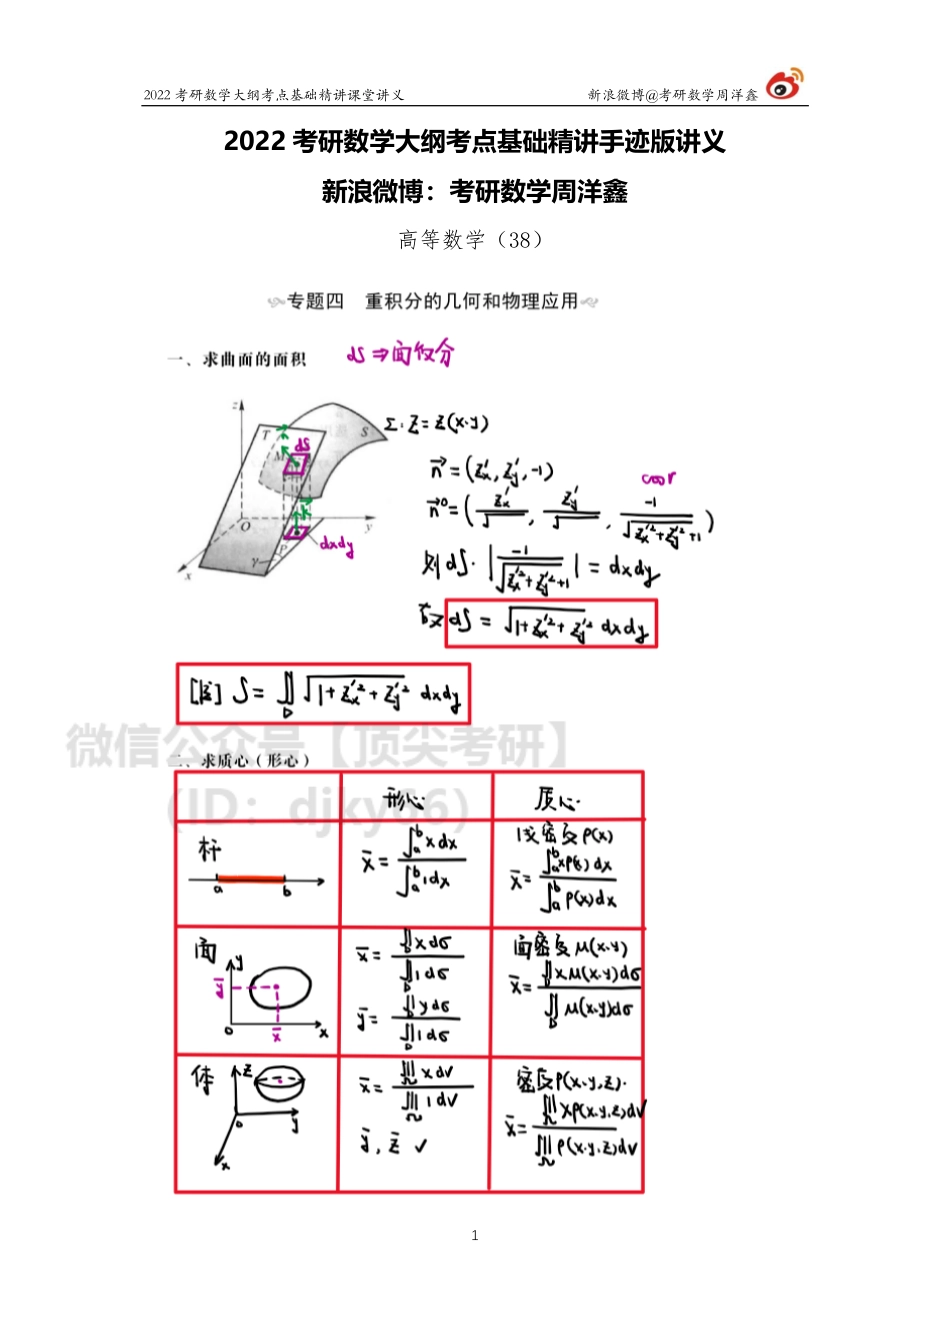 2022 考研数学大纲考点基础精讲课堂讲义 新浪微博@考研数学周洋鑫
2022 考研数学大纲考点基础精讲手迹版讲义
新浪微博：考研数学周洋鑫
高等数学（38）
专题四 重积分的几何和物理应用
一、求曲面的面积 dS⇒面积分
z T n M dS S O k y P γ dxdy x
Σ: z = z(x,y)
n⃗ = (z'x, z'y, -1) cosγ
n⃗° = (z'x/√, z'y/√, -1/√(z'x²+z'y²+1))
则 dS·|-1/√(z'x²+z'y²+1)| = dxdy
故 dS = √(1+z'x²+z'y²) dxdy
S = ∬_D √(1+z'x²+z'y²) dxdy
微信公众号【顶尖考研】
(ID：djky66)
二、求质心（形心）
形心 质心
杆 a b
x̄ = ∫_a^b x dx / ∫_a^b 1 dx
线密度 ρ(x)
x̄ = ∫_a^b xρ(x) dx / ∫_a^b ρ(x) dx
面 y ȳ o x̄ x
x̄ = ∬_D x dσ / ∬_D 1 dσ
ȳ = ∬_D y dσ / ∬_D 1 dσ
面密度 μ(x,y)
x̄ = ∬_D xμ(x,y) dσ / ∬_D μ(x,y) dσ
体 z o y x
x̄ = ∭_Ω x dv / ∭_Ω 1 dv
ȳ, z̄ ✓
密度 ρ(x,y,z).
x̄ = ∭_Ω xρ(x,y,z) dv / ∭_Ω ρ(x,y,z) dv
1